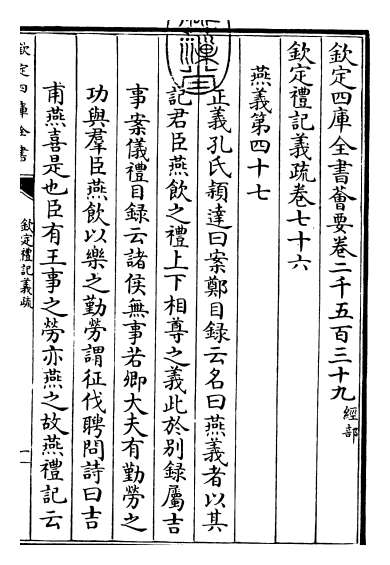 欽定四庫全書薈要卷二千五百三十九 經部
欽定禮記義疏卷七十六
燕義第四十七
正義孔氏穎達曰案鄭目録云名曰燕義者以其
記君臣燕飲之禮上下相尊之義此於别録屬吉
事案儀禮目録云諸侯無事若卿大夫有勤勞之
功與羣臣燕飲以樂之勤勞謂征伐聘問詩曰吉
甫燕喜是也臣有王事之勞亦燕之故燕禮記云
欽定四庫全書
欽定禮記義疏
一